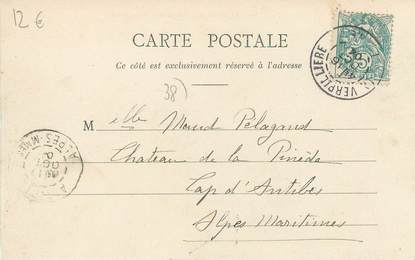 12 €
CARTE POSTALE
Ce côté est exclusivement réservé à l'adresse
38)
VERPILLIERE
M elle Maud Pélagaud
Chateau de la Pinède
Cap d'Antibes
Alpes Maritimes
ALPES-MMES